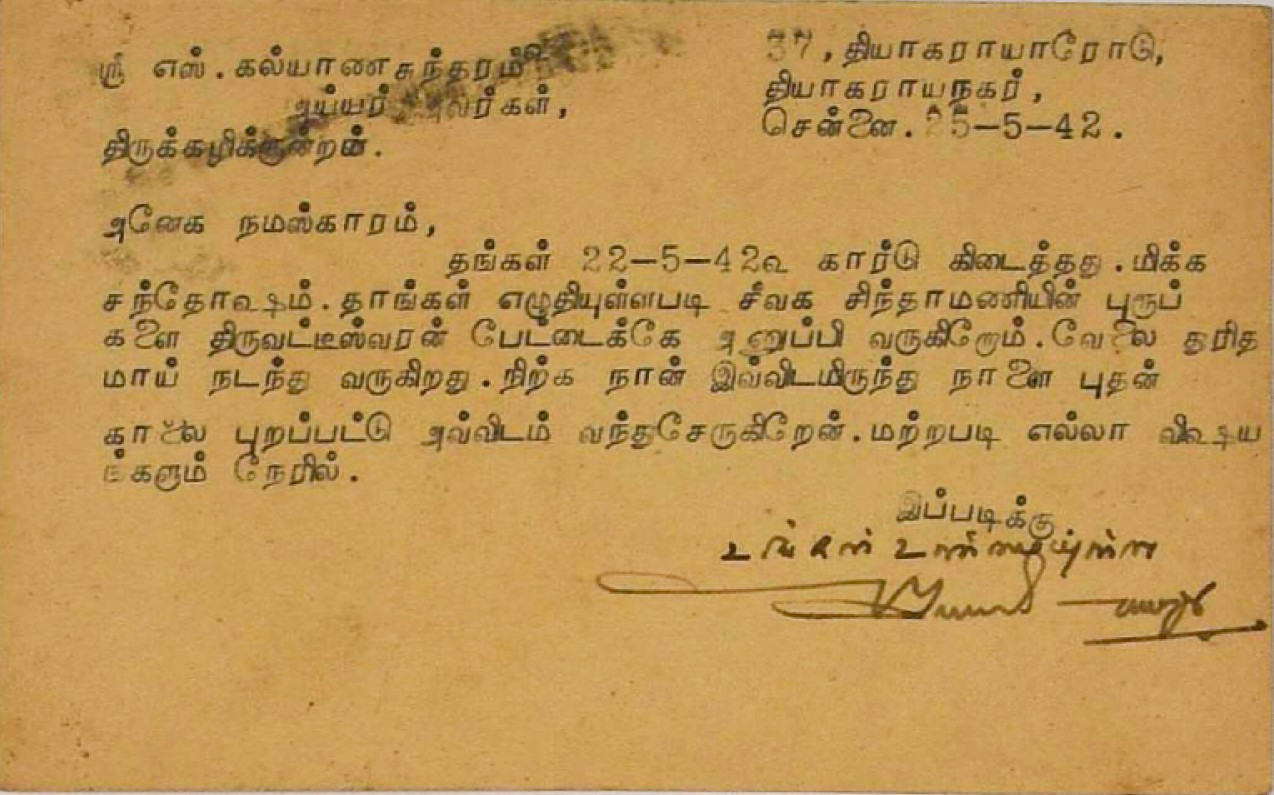 ஸ்ரீ எஸ். கல்யாணசுந்தரம்
அய்யர் அவர்கள்,
திருக்கழிக்குன்றம்.
37, தியாகராயாரோடு,
தியாகராயநகர்,
சென்னை. 25-5-42.
அனேக நமஸ்காரம்,
தங்கள் 22-5-42௳ கார்டு கிடைத்தது. மிக்க
சந்தோஷம். தாங்கள் எழுதியுள்ளபடி சீவக சிந்தாமணியின் புரூப்
களை திருவட்டீஸ்வரன் பேட்டைக்கே அனுப்பி வருகிறோம். வேலை துரித
மாய் நடந்து வருகிறது. நிற்க நான் இவ்விடமிருந்து நாளை புதன்
காலை புறப்பட்டு அவ்விடம் வந்துசேருகிறேன். மற்றபடி எல்லா விஷய
ங்களும் நேரில்.
இப்படிக்கு
உங்கள் உண்மையுள்ள